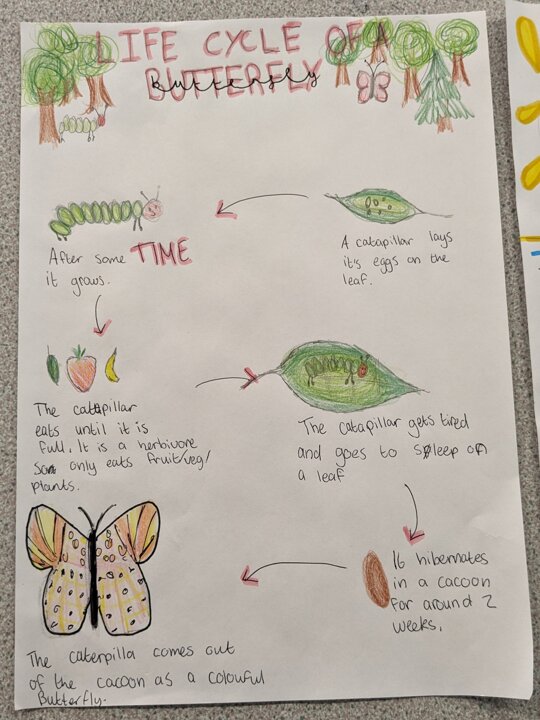 LIFE CYCLE OF A
BUTTERFLY
Butterfly
A catapillar lays
it's eggs on the
leaf.
After some TIME
it grows.
The catapillar
eats until it is
full. It is a herbivore
so only eats fruit/veg/
plants.
The catapillar gets tired
and goes to sleep on
a leaf
16 hibernates
in a cacoon
for around 2
weeks.
The caterpilla comes out
of the cacoon as a colourful
Butterfly.